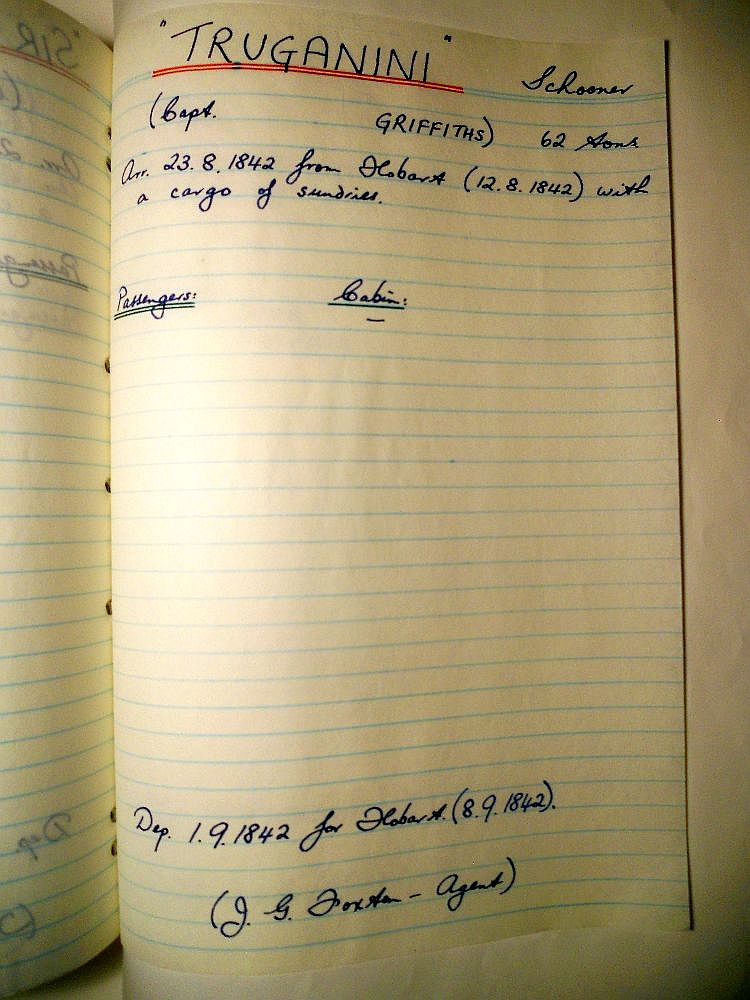 "TRUGANINI" Schooner
(Capt. GRIFFITHS) 62 tons
Arr. 23.8.1842 from Hobart (12.8.1842) with
a cargo of sundries.
Passengers: Cabin:
—
Dep. 1.9.1842 for Hobart. (8.9.1842).
(J. G. Foxton - Agent)